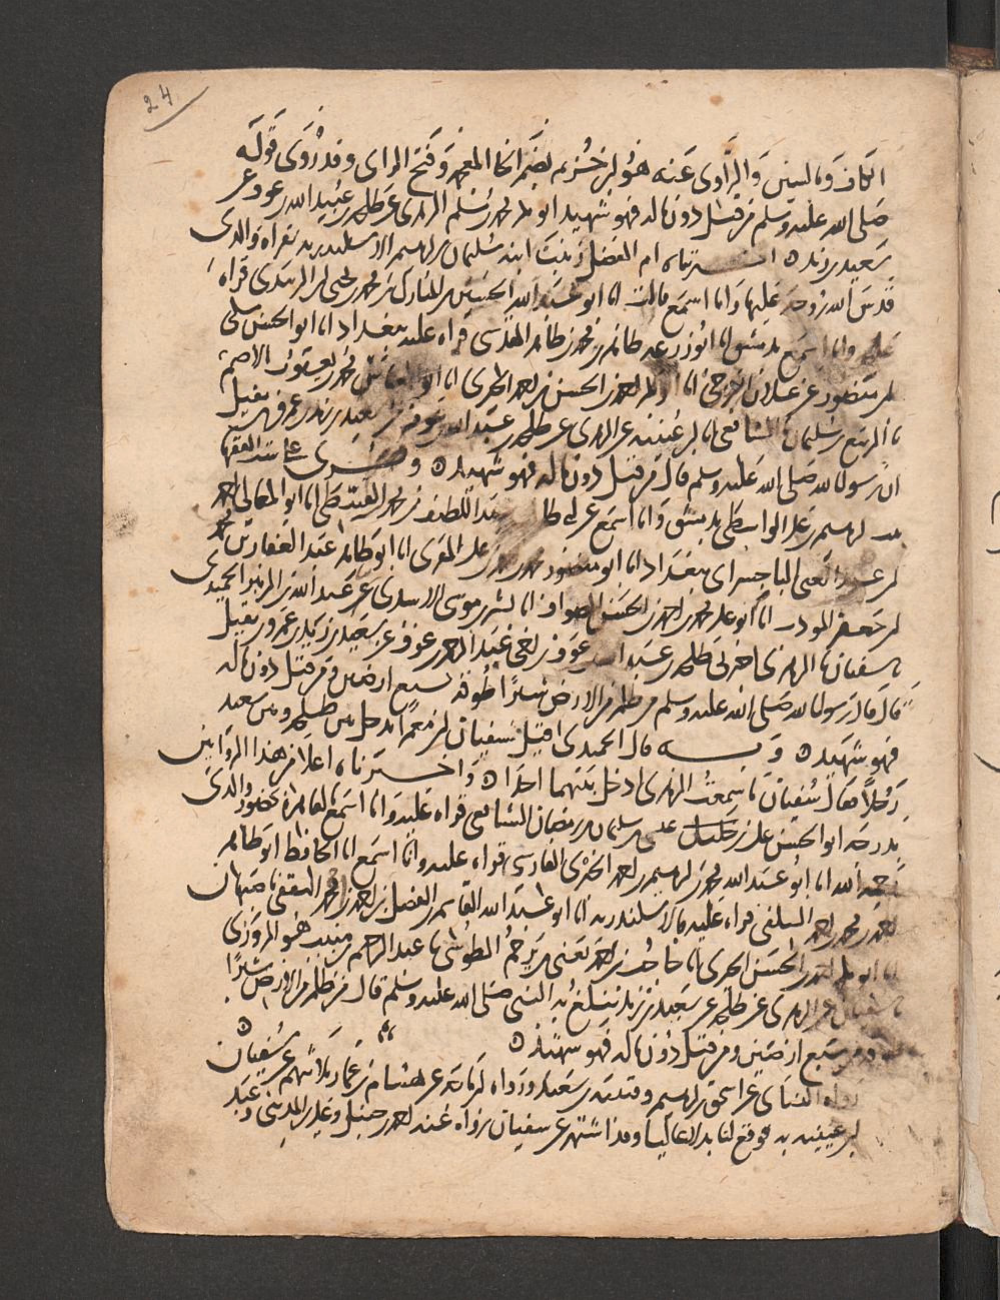 24
الكاف وبالسين والراوى عنه هو ابن خزيم بضم الخا المعجمه وفتح الراى وقد روى قوله
صلى الله عليه وسلم من قتل دون ماله فهو شهيد ابو بكر محمد بن مسلم الزهرى عن طلحه بن عبيد الله بن عوف عن
سعيد بن زيد ه اخبرتناه ام الفضل زينب ابنه سليمان بن ابرهيم الاسعردى بقراه والدى
قدس الله روحه عليها وانا اسمع قالت انا ابو عبد الله الحسين بن المبارك بن محمد بن يحيى ابن الزبيدى قراه
عليه وانا اسمع بدمشق انا ابو زرعه طاهر بن محمد بن طاهر المقدسى قراه عليه ببغداد انا ابو الحسن مكى
بن منصور بن علان الكرجى انا ابو بكر احمد بن الحسن بن احمد الحرى انا ابو العباس محمد بن يعقوب الاصم
نا الربيع بن سليمان نا الشافعى انا ابن عيينه عن الزهرى عن طلحه بن عبد الله بن عوف عن سعيد بن زيد بن عمرو بن نفيل
ان رسول الله صلى الله عليه وسلم قال من قتل دون ماله فهو شهيد ه وقرى على ست الفقها
بنت ابرهيم بن على الواسطى بدمشق وانا اسمع عن ابى طالب عبد اللطيف بن محمد القبيطى انا ابو المعالى احمد
بن عبد الغنى الباجسراى ببغداد انا ابو منصور محمد بن احمد بن على المقرى انا ابو طاهر عبد الغفار بن محمد
بن جعفر المودب انا ابو على محمد بن احمد بن الحسن الصواف انا بشر بن موسى الاسدى عن عبد الله بن الزبير الحميدى
نا سفيان نا الزهرى اخبرنى طلحه بن عبد الله بن عوف بن اخى عبد الرحمن بن عوف عن سعيد بن زيد بن عمرو بن نفيل
قال قال رسول الله صلى الله عليه وسلم من ظلم من الارض شبرا طوقه من سبع ارضين ومن قتل دون ماله
فهو شهيد ه وبه قال الحميدى قيل لسفيان ان معمرا يدخل بين طلحه وبين سعيد
رجلا فقال سفيان ما سمعت الزهرى ادخل بينهما احدا ه واخبرناه اعلا من هذا الروايتين
بدرجه ابو الحسن على بن خليل عيسى بن سليمان بن رمضان الشافعى قراه عليه وانا اسمع بالقاهره بحضور والدى
رحمه الله انا ابو عبد الله محمد بن ابرهيم بن احمد الخبرى الفارسى قراه عليه وانا اسمع انا الحافظ ابو طاهر
احمد بن محمد بن احمد السلفى قراه عليه بالاسكندريه انا ابو عبد الله القاسم بن الفضل بن احمد بن محمود الثقفى باصبهان
انا ابو بكر احمد بن الحسن الحرى نا حاجب بن احمد يعنى بن يرحم الطوسى نا عبد الرحيم بن منيب هو المروزى
نا سفيان عن الزهرى عن طلحه عن سعيد بن زيد يبلغ به النبى صلى الله عليه وسلم قال من ظلم من الارض شبرا
طوقه من سبع ارضين ومن قتل دون ماله فهو شهيد ه
رواه النساى عن اسحق بن ابرهيم وقتيبه بن سعيد ورواه ابن ماجه عن هشام بن عمار ثلاثتهم عن سفيان ه
ابن عيينه به فوقع لنا بدلا عاليا وقد اشتهر عن سفيان رواه عنه احمد بن حنبل وعلى بن المدينى وعبد